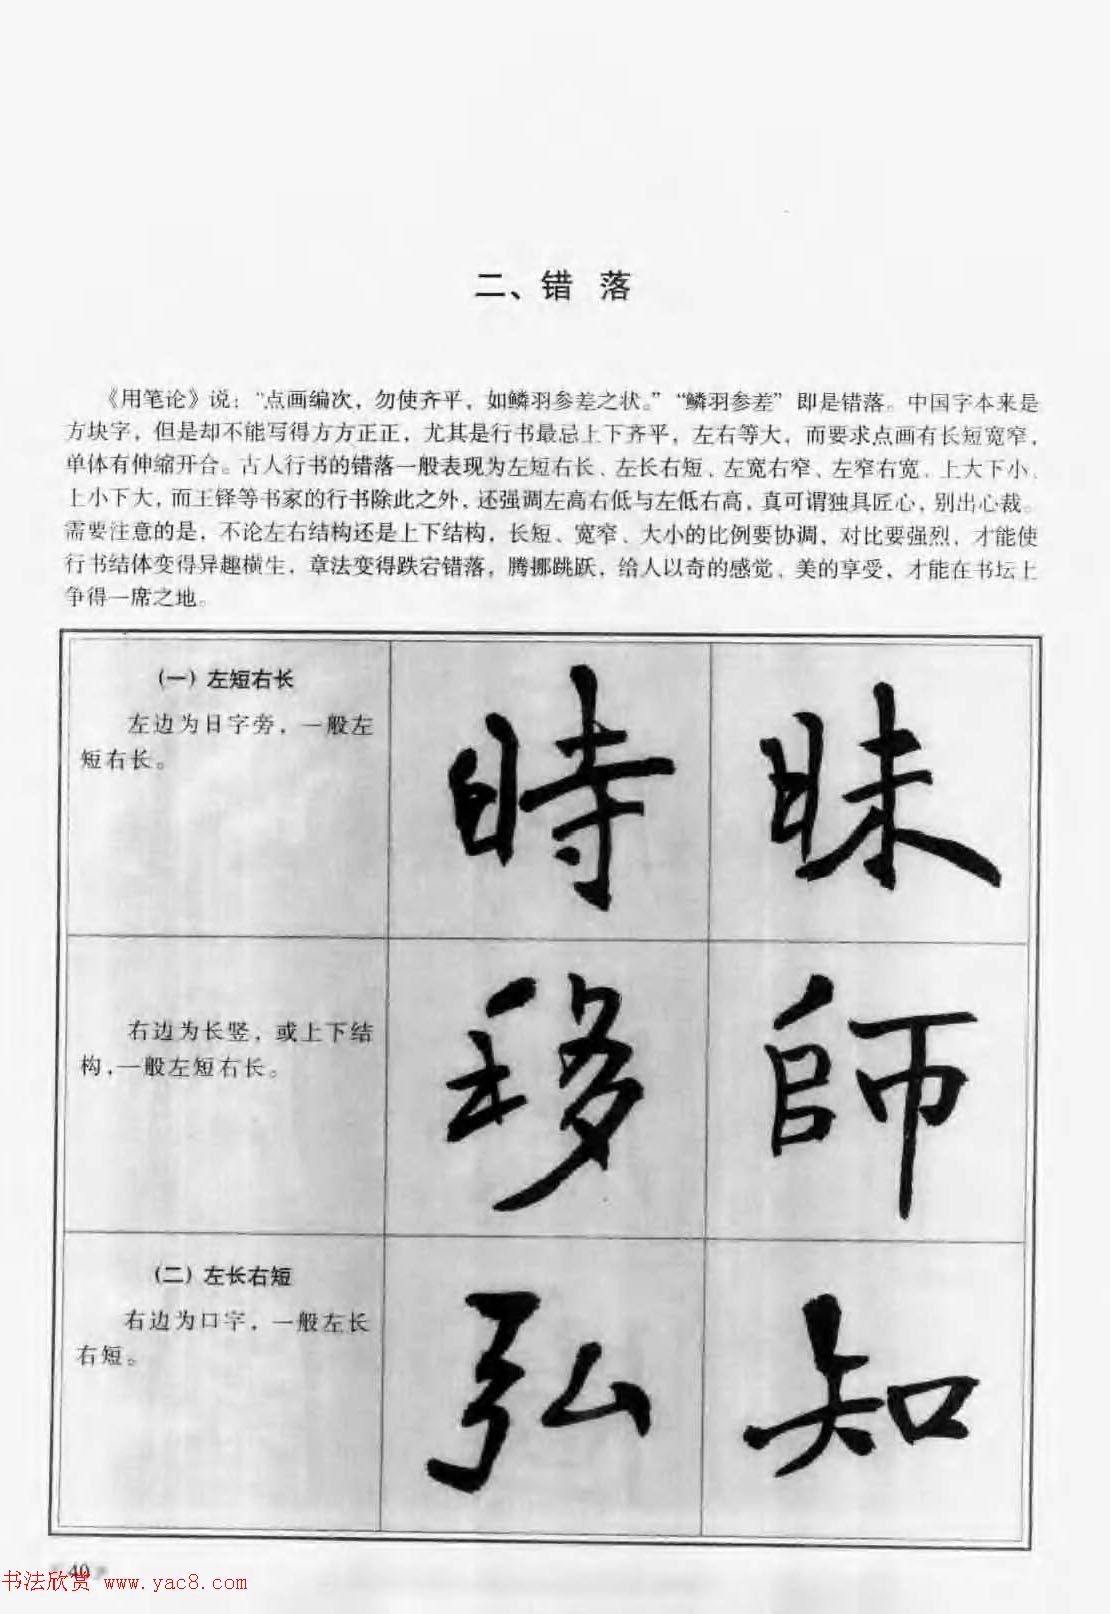 二、错 落
《用笔论》说：“点画编次，勿使齐平，如鳞羽参差之状。”“鳞羽参差”即是错落。中国字本来是
方块字，但是却不能写得方方正正，尤其是行书最忌上下齐平，左右等大，而要求点画有长短宽窄，
单体有伸缩开合。古人行书的错落一般表现为左短右长、左长右短、左宽右窄、左窄右宽、上大下小、
上小下大，而王铎等书家的行书除此之外，还强调左高右低与左低右高，真可谓独具匠心，别出心裁。
需要注意的是，不论左右结构还是上下结构，长短、宽窄、大小的比例要协调，对比要强烈，才能使
行书结体变得异趣横生，章法变得跌宕错落，腾挪跳跃，给人以奇的感觉、美的享受，才能在书坛上
争得一席之地。
（一）左短右长
左边为日字旁，一般左
短右长。
時 昧
右边为长竖，或上下结
构，一般左短右长。
移 師
（二）左长右短
右边为口字，一般左长
右短。
弘 知
40
书法欣赏 www.yac8.com